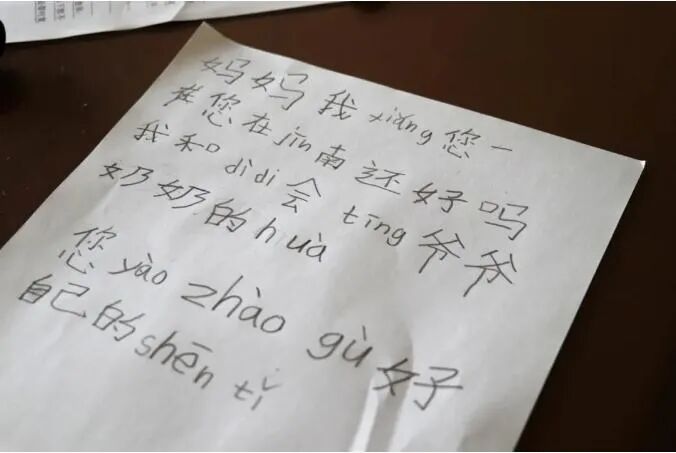 妈妈我xiǎng您一
您在jǐn南还好吗
我和dìdi会tīng爷爷
奶奶的huà
您yào zhào gù好
自己的shēn tǐ